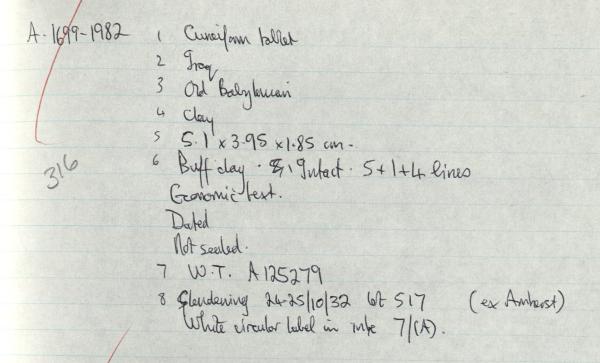 A.1699-1982 1 Cuneiform tablet
2 Iraq
3 Old Babylonian
4 Clay
5 5.1 x 3.95 x 1.85 cm.
316
6 Buff clay. Intact. 5+1+4 lines
Economic text.
Dated
Not sealed.
7 W.T. A125279
8 Glendening 24-25/10/32 lot 517 (ex Amherst)
White circular label in ink 7/(A).